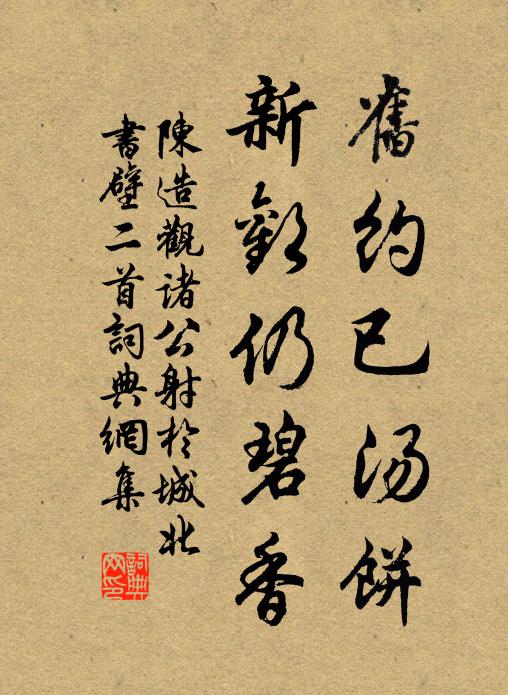 舊約已汤餅
新歡仍碧香
陳造觀诸公射於城北
書壁二首詞典網集
詞典網印